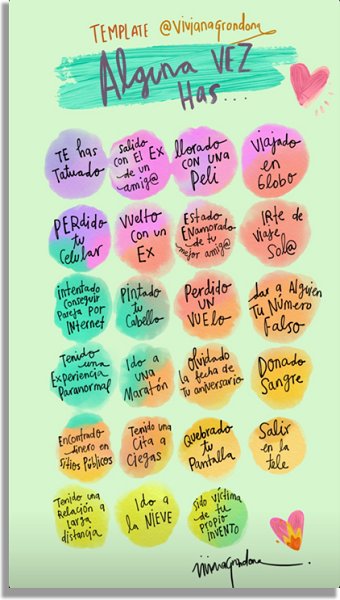 TEMPLATE @VivianaGrondona
Alguna VEZ
Has...
TE has
Tatuado
Salido
con El Ex
de un
amig@
llorado
con una
Peli
Viajado
en
Globo
PERdido
tu
Celular
Vuelto
con un
Ex
Estado
ENamorado
de tu
mejor amig@
IRte de
viaje
Sol@
intentado
conseguir
Pareja por
INternet
Pintado
tu
Cabello
Perdido
UN
Vuelo
dar a Alguien
Tu Número
Falso
Tenido
una
Experiencia
Paranormal
Ido a
una
Maratón
Olvidado
la fecha de
Tu aniversario
Donado
Sangre
Encontrado
dinero en
sitios Públicos
Tenido una
Cita a
Ciegas
Quebrado
tu
Pantalla
Salir
en la
tele
Tenido una
Relación a
larga
distancia
Ido a
la NIEVE
sido víctima
de tu
propio
INVENTO
vivianagrondona.